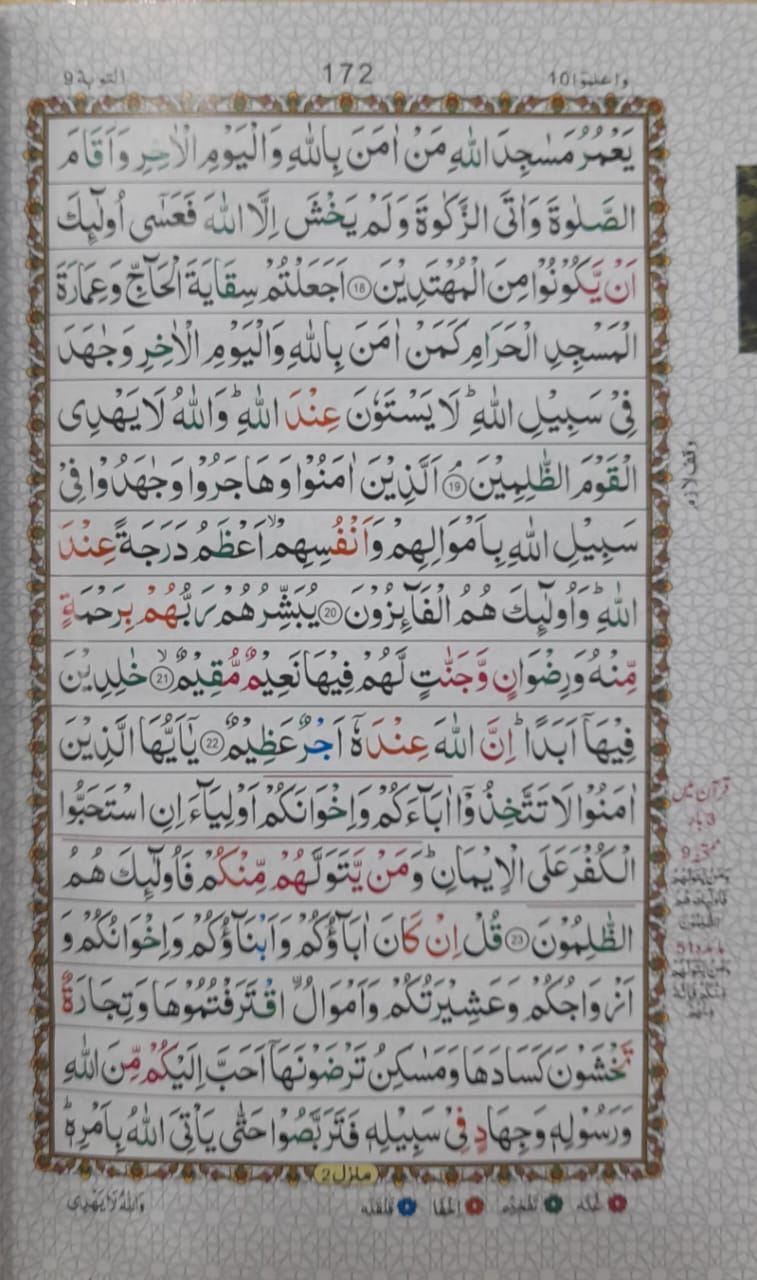 واعلموا 10
172
التوبة 9
يَعْمُرُ مَسٰجِدَ اللّٰهِ مَنْ اٰمَنَ بِاللّٰهِ وَالْيَوْمِ الْاٰخِرِ وَاَقَامَ
الصَّلٰوةَ وَاٰتَى الزَّكٰوةَ وَلَمْ يَخْشَ اِلَّا اللّٰهَ فَعَسٰٓى اُولٰٓئِكَ
اَنْ يَّكُوْنُوْا مِنَ الْمُهْتَدِيْنَ ⑱ اَجَعَلْتُمْ سِقَايَةَ الْحَآجِّ وَعِمَارَةَ
الْمَسْجِدِ الْحَرَامِ كَمَنْ اٰمَنَ بِاللّٰهِ وَالْيَوْمِ الْاٰخِرِ وَجٰهَدَ
فِيْ سَبِيْلِ اللّٰهِ ؕ لَا يَسْتَوٗنَ عِنْدَ اللّٰهِ ؕ وَاللّٰهُ لَا يَهْدِى
الْقَوْمَ الظّٰلِمِيْنَ ۘ ⑲ اَلَّذِيْنَ اٰمَنُوْا وَهَاجَرُوْا وَجٰهَدُوْا فِيْ
سَبِيْلِ اللّٰهِ بِاَمْوَالِهِمْ وَاَنْفُسِهِمْ ۙ اَعْظَمُ دَرَجَةً عِنْدَ
اللّٰهِ ؕ وَاُولٰٓئِكَ هُمُ الْفَآئِزُوْنَ ⑳ يُبَشِّرُهُمْ رَبُّهُمْ بِرَحْمَةٍ
مِّنْهُ وَرِضْوَانٍ وَّجَنّٰتٍ لَّهُمْ فِيْهَا نَعِيْمٌ مُّقِيْمٌ ۙ ㉑ خٰلِدِيْنَ
فِيْهَآ اَبَدًا ؕ اِنَّ اللّٰهَ عِنْدَهٗٓ اَجْرٌ عَظِيْمٌ ㉒ يٰٓاَيُّهَا الَّذِيْنَ
اٰمَنُوْا لَا تَتَّخِذُوْٓا اٰبَآءَكُمْ وَاِخْوَانَكُمْ اَوْلِيَآءَ اِنِ اسْتَحَبُّوا
الْكُفْرَ عَلَى الْاِيْمَانِ ؕ وَمَنْ يَّتَوَلَّهُمْ مِّنْكُمْ فَاُولٰٓئِكَ هُمُ
الظّٰلِمُوْنَ ㉓ قُلْ اِنْ كَانَ اٰبَآؤُكُمْ وَاَبْنَآؤُكُمْ وَاِخْوَانُكُمْ وَ
اَزْوَاجُكُمْ وَعَشِيْرَتُكُمْ وَاَمْوَالُ ۨاقْتَرَفْتُمُوْهَا وَتِجَارَةٌ
تَخْشَوْنَ كَسَادَهَا وَمَسٰكِنُ تَرْضَوْنَهَآ اَحَبَّ اِلَيْكُمْ مِّنَ اللّٰهِ
وَرَسُوْلِهٖ وَجِهَادٍ فِيْ سَبِيْلِهٖ فَتَرَبَّصُوْا حَتّٰى يَاْتِىَ اللّٰهُ بِاَمْرِهٖ ؕ
وقف لازم
قرآن میں
3 بار
منزل 2
غُنّه
تفخیم
اخفا
قلقله
وَاللّٰهُ لَا يَهْدِى